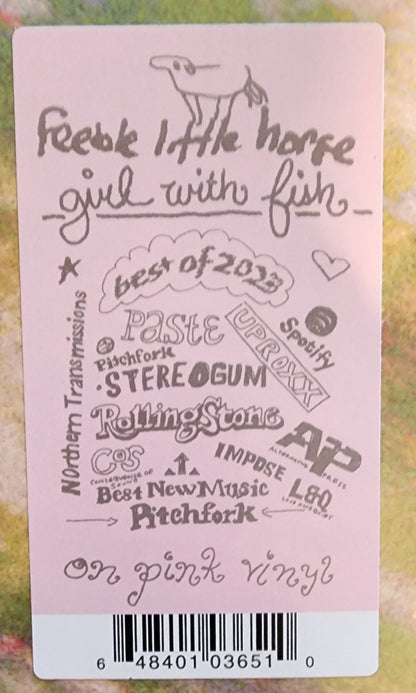 feeble little horse
girl with fish
best of 2023
Paste
UPROXX
Spotify
Northern Transmissions
Pitchfork
STEREOGUM
RollingStone
AP
ALTERNATIVE PRESS
CoS
CONSEQUENCE OF SOUND
IMPOSE
L&Q
LOUD AND QUIET
Best New Music
Pitchfork
on pink vinyl
6 48401 03651 0